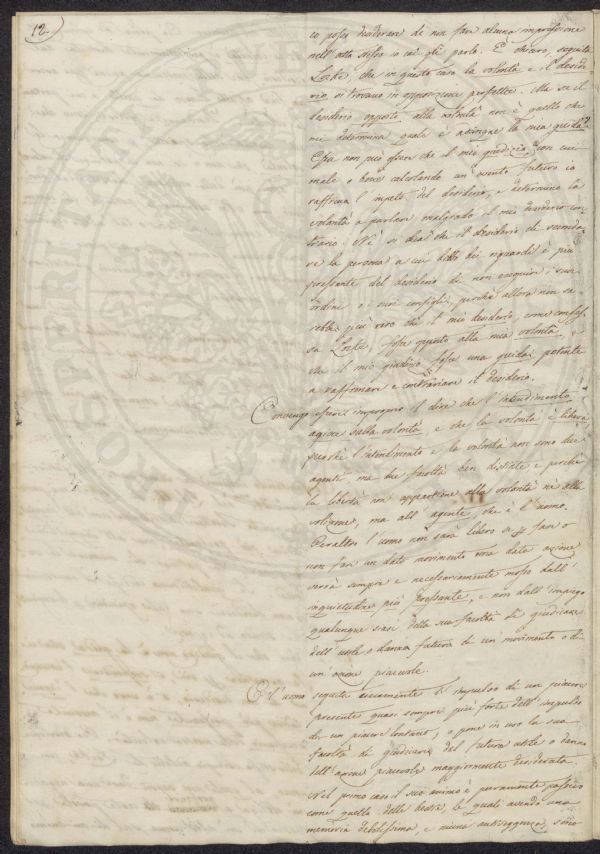 12.
io possa desiderare di non fare alcuna impressione
nell'atto stesso in cui gli parlo. È chiaro, seguita
Locke, che in questo caso la volontà e il deside
rio si trovano in opposizione perfetta. Ma se il
desiderio opposto alla volontà non è quello che
mi determina quale è adunque la mia guida?
Essa non può essere che il mio giudizio, con cui
male o bene calcolando un evento futuro io
raffreno l'impeto del desiderio, e determino la
volontà a parlare malgrado il mio desiderio con
trario. Nè si dica che il desiderio di seconda
re la persona a cui debbo dei riguardi è più
pressante del desiderio di non eseguire i suoi
ordini o i suoi consigli, perchè allora non sa
rebbe più vero che il mio desiderio, come confes
sa Locke, fosse opposto alla mia volontà,
che il mio giudizio fosse una guida potente
a raffrenare e contrariare il desiderio.
Convengo essere improprio il dire che l'intendimento
agisce sulla volontà, e che la volontà è libera
perchè l'intendimento e la volontà non sono due
agenti ma due facoltà ben distinte, e perchè
la libertà non appartiene alla volontà nè alla
volizione, ma all'agente, che è l'uomo.
Peraltro l'uomo non sarà libero se fare o
non fare un dato movimento una data azione
verrà sempre e necessariamente mosso dall'
inquietudine più pressante, e non dall'impiego
qualunque siasi della sua facoltà di giudicare
dell'utile o danno futuro di un movimento o di
un'azione piacevole.
O l'uomo seguita ciecamente l'impulso di un piacere
presente quasi sempre più forte dell'impulso
di un piacere lontano, o pone in uso la sua
facoltà di giudicare del futuro utile o danno
dell'azione piacevole maggiormente desiderata.
Nel primo caso il suo animo è puramente passivo
come quello delle bestie, le quali avendo una
memoria debolissima, e niuna antiveggenza, sono